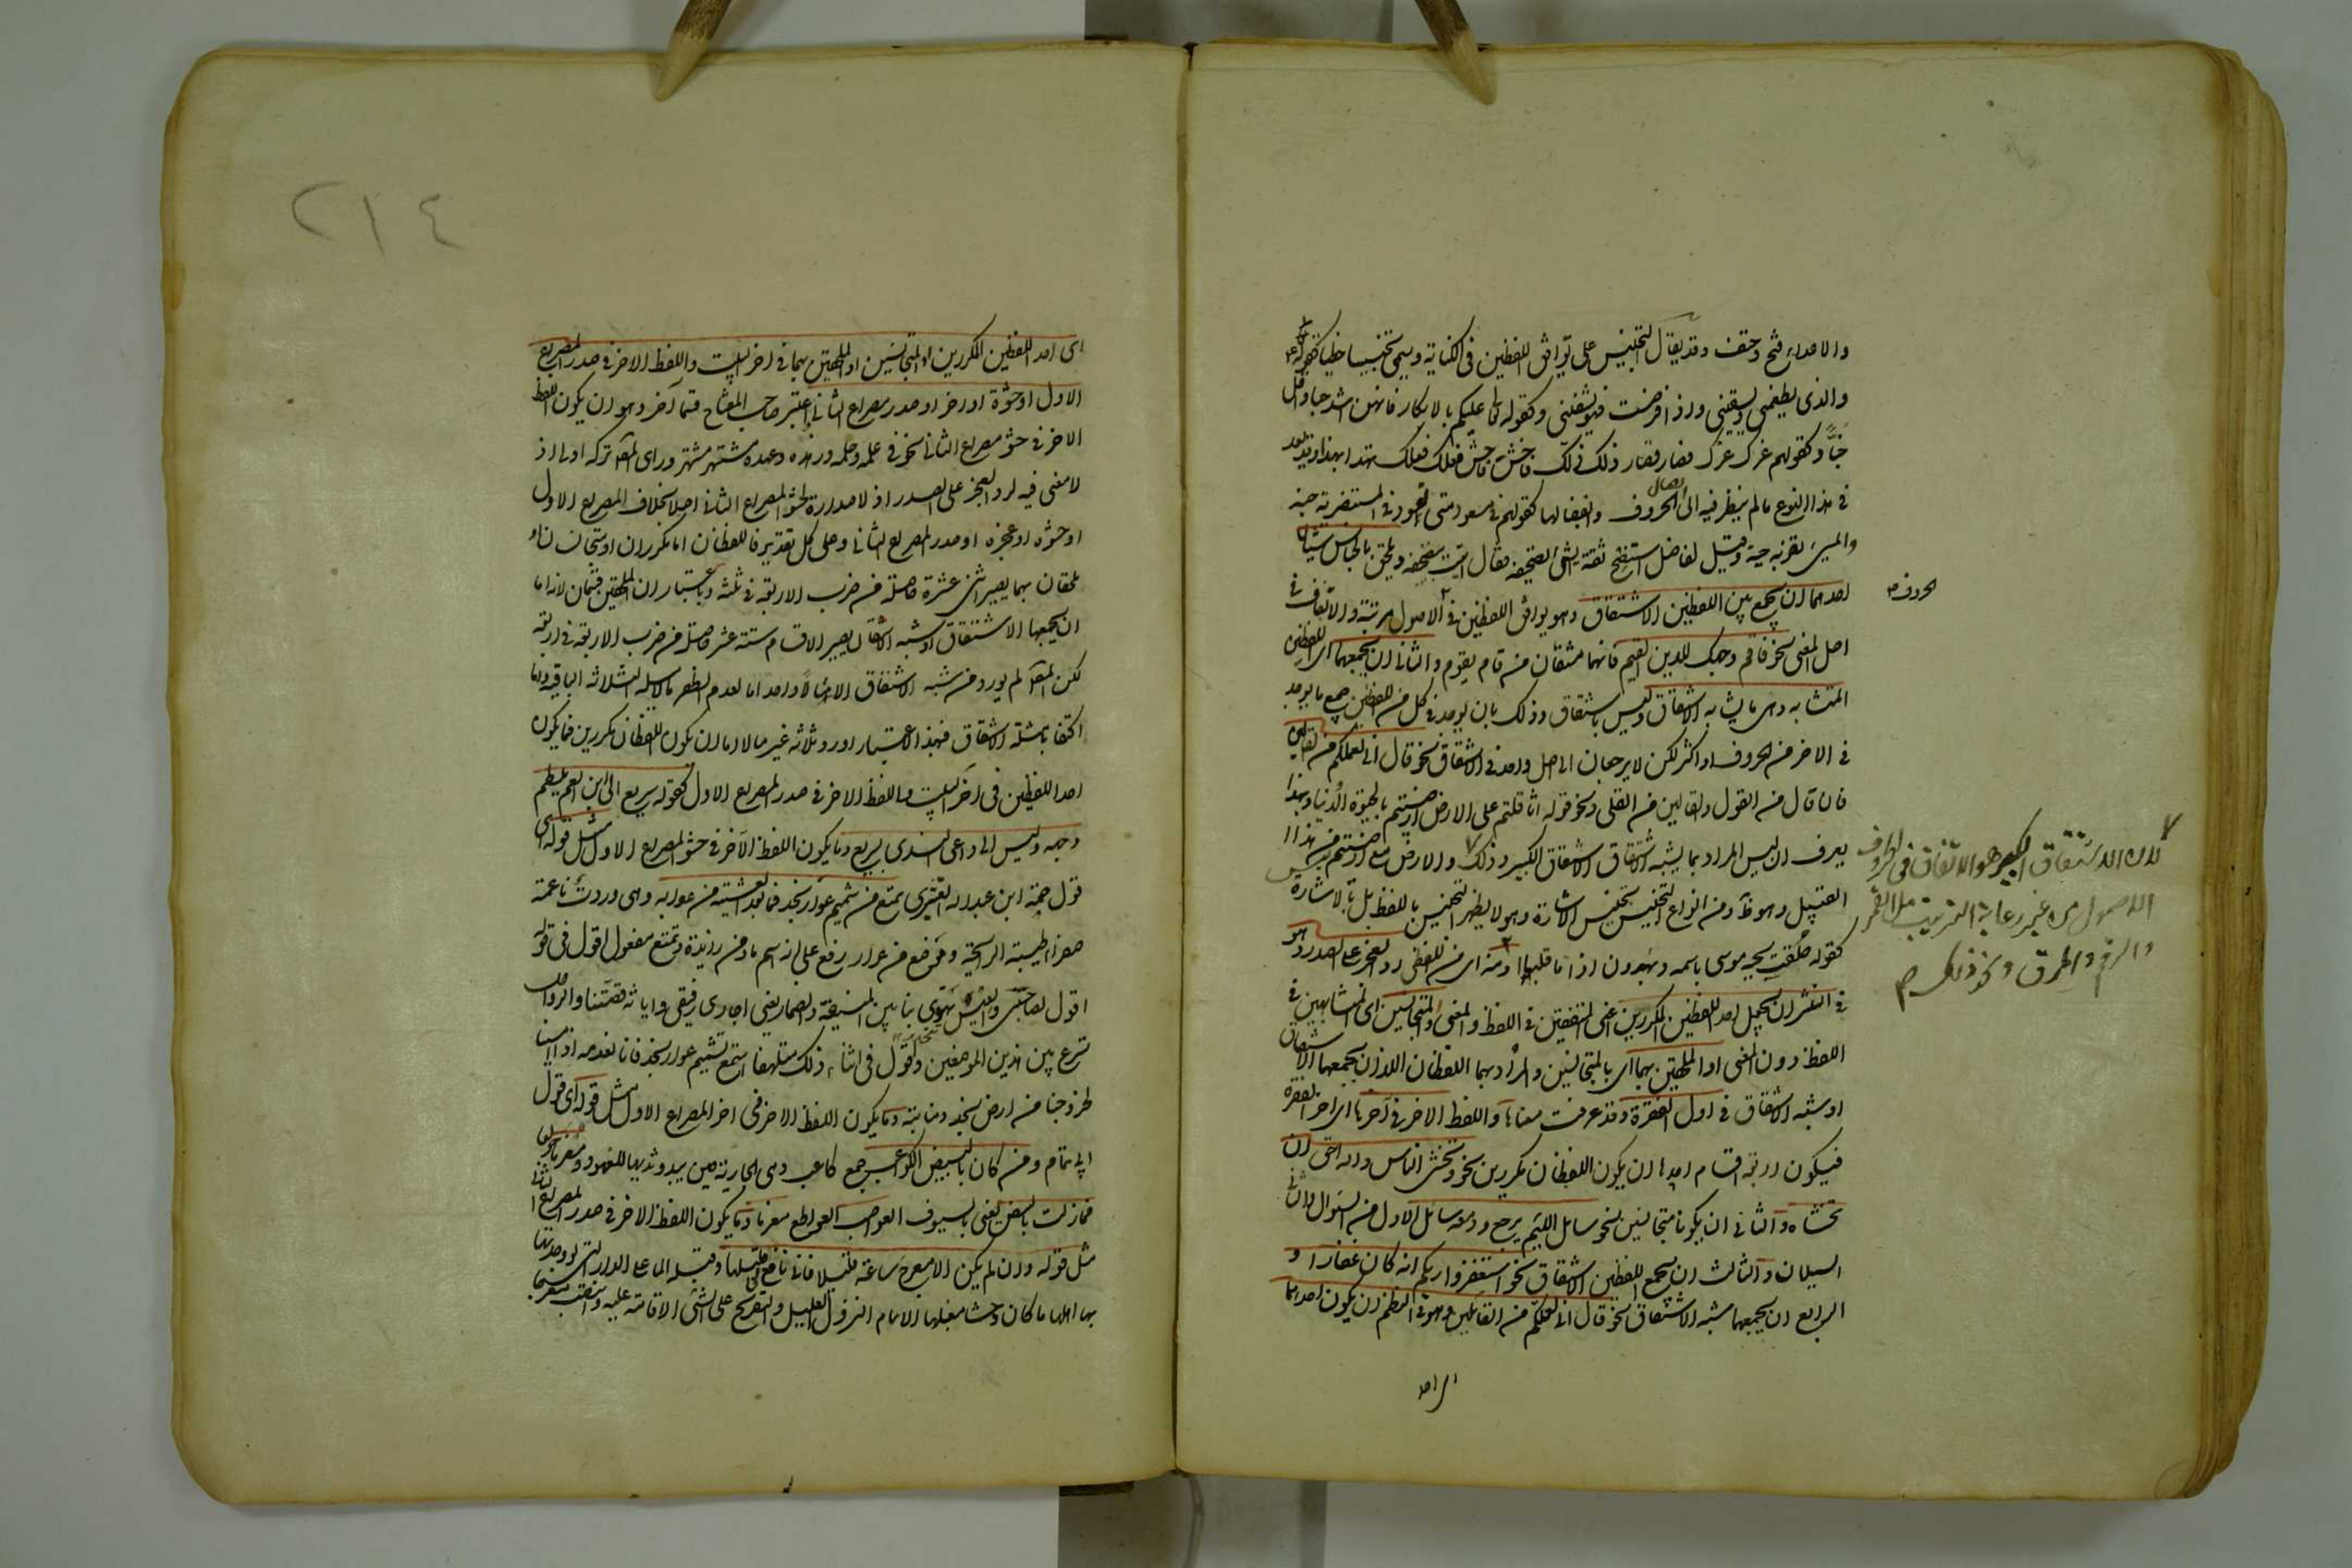 والاعداء فتح وحتف وقد يقال التجنيس على توافق اللفظين فى الكتابة ويسمى تجنيسا خطيا كقوله تع
والذى يطعمنى ويسقين واذا مرضت فهو يشفين وكقوله عليكم بالابكار فانهن اشد حبا واقل
خبا وكقولهم غرك عزك فصار قصار ذلك ذلك فاخش فاحش فعلك فعلك تهدا بهذا وقد يعد
فى هذا النوع ما لم ينظر فيه الى اتصال الحروف وانفصالها كقولهم فى مسعود متى يعود وفى المستنصرية جنة
والمسىء يضربه حية وقيل لفاضل استنصح ثقة ايش تصحيفه فقال اتيت بتصحيفه ويلحق بالجناس شيئان
احدهما ان يجمع بين اللفظين الاشتقاق وهو توافق اللفظين فى الاصول مرتبة والاتفاق فى
الحروف صح
اصل المعنى نحو فاقم وجهك للدين القيم فانهما مشتقان من قام يقوم والثانى ان يجمعهما اى اللفظين
المشابهة وهى ما يشبه الاشتقاق وليس باشتقاق وذلك بان يوجد فى كل من اللفظين جميع ما يوجد
فى الاخر من الحروف او اكثر لكن لا يرجعان الى اصل واحد فى الاشتقاق نحو قال انى لعملكم من القالين
فان قال من القول والقالين من القلى ونحو قوله اثاقلتم على الارض ارضيتم بالحيوة الدنيا وبهذا
يعرف ان ليس المراد بما يشبه الاشتقاق الاشتقاق الكبير وذلك والارض مع ارضيتم من هذا
القبيل وهو ومن انواع التجنيس تجنيس الاشارة وهو لا يظهر التجنيس باللفظ بل بالاشارة
كقوله حلقت لحية موسى باسمه وبهرون اذا ما قلبا ومنه اى من اللفظى رد العجز على الصدر وهو
فى النثر ان يجعل احد اللفظين المكررين اعنى المتفقين فى اللفظ والمعنى او المتجانسين اى المتشابهين فى
اللفظ دون المعنى او الملحقين بهما اى بالمتجانسين والمراد بهما اللفظان اللذان يجمعهما الاشتقاق
او شبه الاشتقاق فى اول الفقرة وقد عرفت معناها واللفظ الاخر فى آخرها اى اخر الفقرة
فيكون اربعة اقسام احدها ان يكون اللفظان مكررين نحو وتخشى الناس والله احق ان
تخشاه والثانى ان يكونا متجانسين نحو سائل اللئيم يرجع ودمعه سائل الاول من السؤال والثانى
السيلان والثالث ان يجمع اللفظين الاشتقاق نحو استغفروا ربكم انه كان غفارا و
الرابع ان يجمعهما شبه الاشتقاق نحو قال انى لعملكم من القالين وهو فى النظم ان يكون احدهما
لان الاشتقاق الكبير هو الاتفاق فى الحروف
الاصول من غير رعاية الترتيب مثل القمر
والرقم والمرق ونحو ذلك صح
اى احد
٢١٤
اى احد اللفظين المكررين او المتجانسين او الملحقين بهما فى اخر البيت واللفظ الاخر فى صدر المصراع
الاول او حشوه او اخره او صدر مصراع الثانى واعتبر صاحب المفتاح قسما آخر وهو ان يكون اللفظ
الاخر فى حشو مصراع الثانى نحو فى علمه وحلمه وزهده وعهده مشتهر مشتهر وراى المص تركه اولى اذ
لا معنى فيه لرد العجز على الصدر اذ لا صدارة لحشو المصراع الثانى اصلا بخلاف المصراع الاول
او حشوه او عجزه او صدر المصراع الثانى وعلى كل تقدير فاللفظان اما مكرران او متجانسان او
ملحقان بهما يصير اثنى عشرة حاصلة من ضرب الاربعة فى ثلثة وباعتبار ان الملحقين قسمان لانه اما
ان يجمعهما الاشتقاق او شبه الاشتقاق يصير الاقسام ستة عشر حاصلة من ضرب الاربعة فى اربعة
لكن المص لم يورد من شبه الاشتقاق الا مثالا واحدا اما لعدم الظفر بالامثلة الثلاثة الباقية واما
اكتفا بامثلة الاشتقاق فبهذا الاعتبار اورد ثلاثة عشر مثالا اما ان يكون اللفظان مكررين فما يكون
احد اللفظين فى اخر البيت واللفظ الاخر فى صدر المصراع الاول كقوله سريع الى ابن العم يلطم
وجهه وليس الى داعى الندى بسريع وما يكون اللفظ الآخر فى حشو المصراع الاول مثل قوله اى
قول صمة ابن عبد الله القشيرى تمتع من شميم عرار نجد فما بعد العشية من عرار به وهى وردة ناعمة
صفراء طيبة الرائحة وموضع من عرار رفع على انه اسم ما ومن زائدة وتمتع مفعول اقول فى قوله
اقول لصاحبى والعيس تهوى بنا بين المنيفة والضمار يعنى اجارى رفيقى واياثه قصتنا والرواحل
تسرع بين هذين الموضعين واقول فى اثناء ذلك متلهفا استمتع بشميم عرار نجد فانا نعدمه اذا امسينا
لخروجنا من ارض نجد ومنابته وما يكون اللفظ الاخر فى اخر المصراع الاول مثل قوله اى قول
ابى تمام ومن كان بالبيض الكواعب جمع كاعب وهى الجارية حين يبدو ثديها للنهود ومغرما مولعا
فما زلت بالبيض يعنى بالسيوف القواضب القواطع مغرما وما يكون اللفظ الاخر فى صدر المصراع الثانى
مثل قوله وان لم يكن الا معرج ساعة قليلا فانى نافع لى قليلها وقبله الما على الدار التى لو وجدتها
بها اهلها ما كان وحشا مقيلها الالمام النزول القليل والتعريج على الشىء الاقامة عليه وانتصب معرج